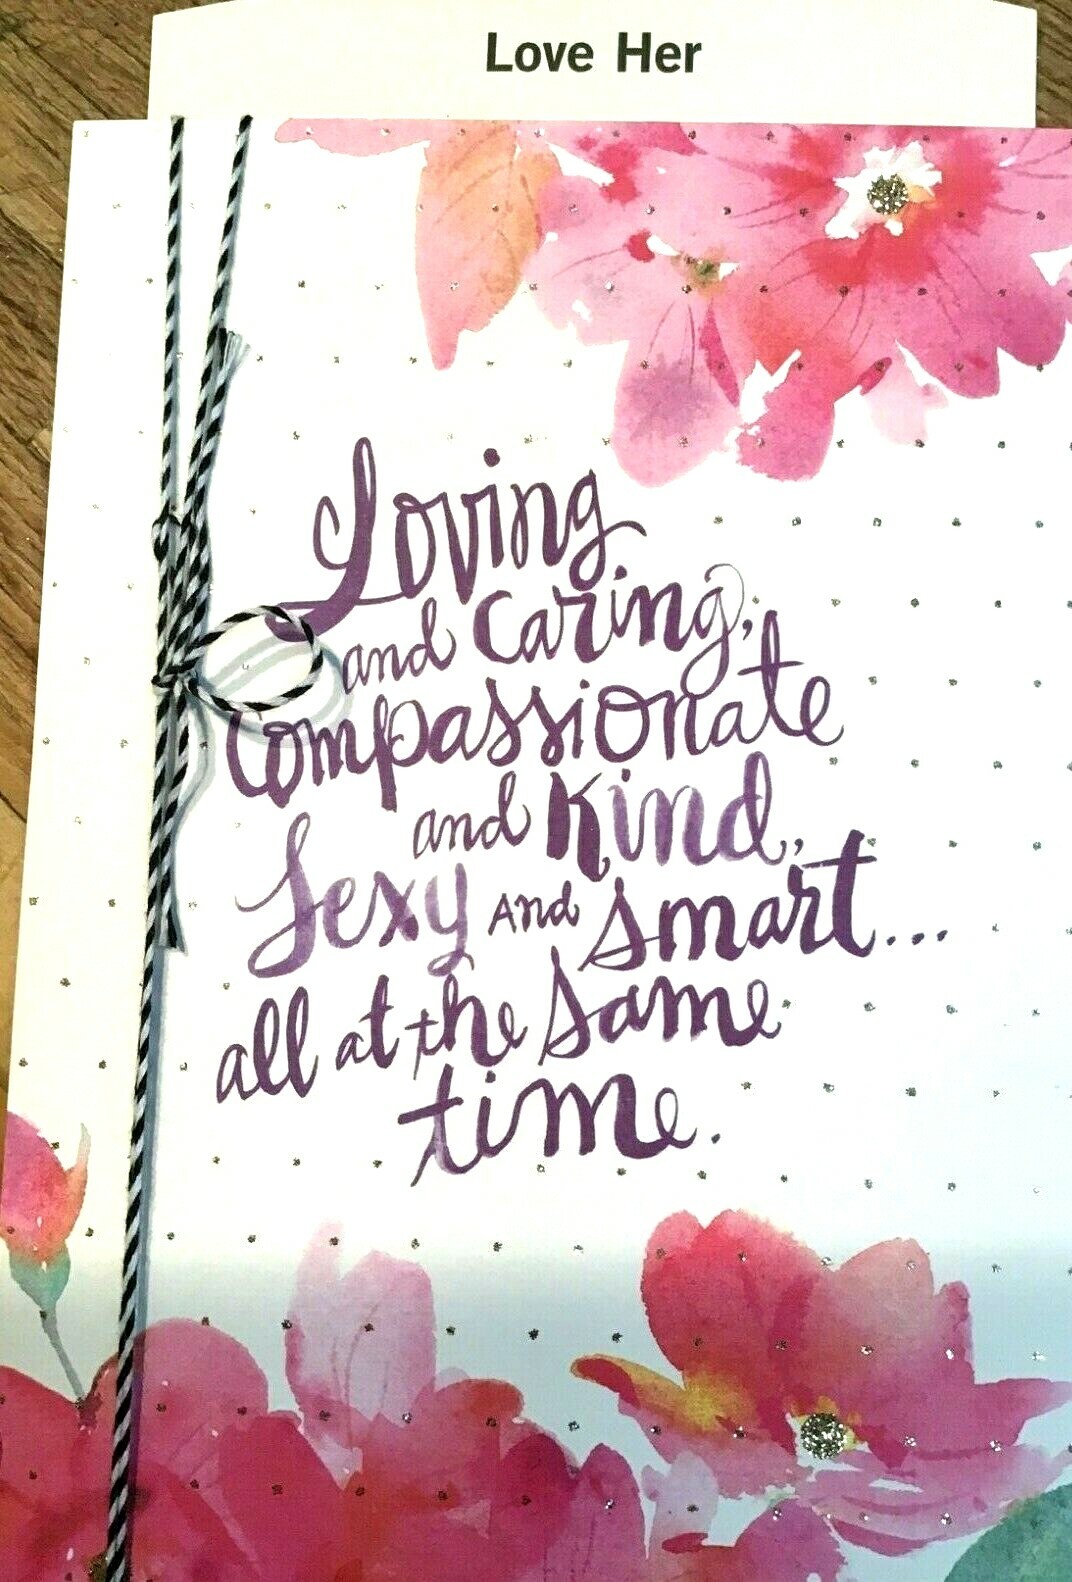 Love Her
Loving
and Caring,
Compassionate
and Kind,
Sexy And Smart...
all at the same
time.